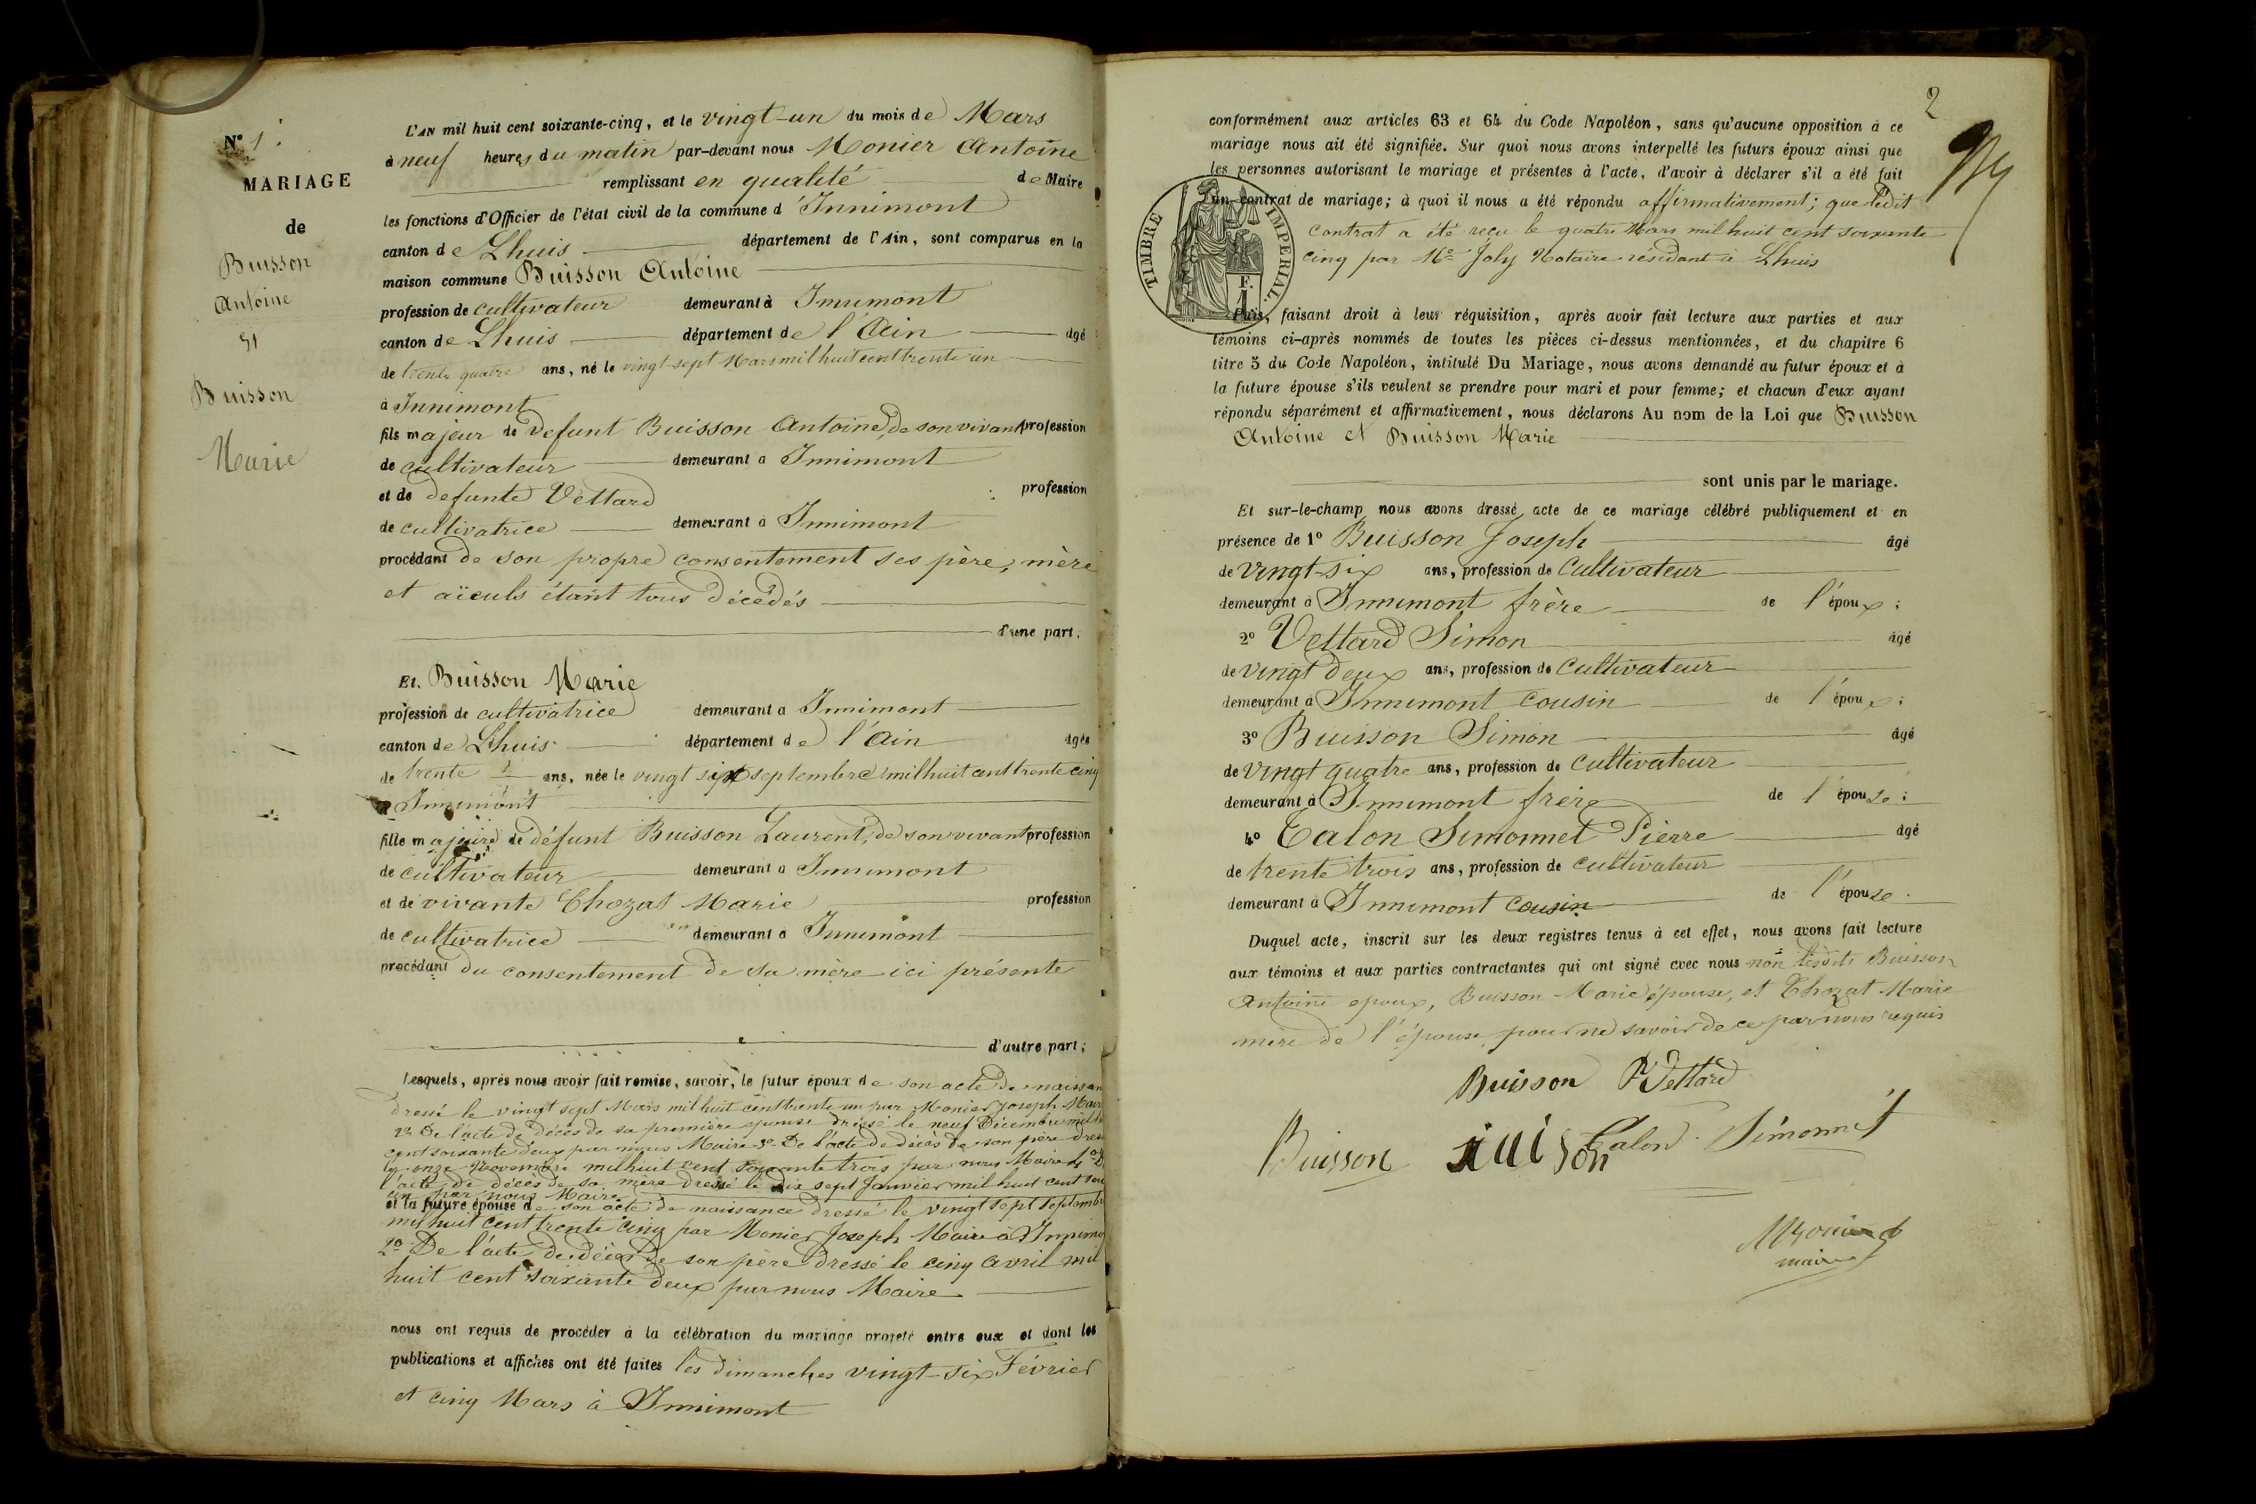 N° 1
MARIAGE
de
Buisson
Antoine
et
Buisson
Marie
L'AN mil huit cent soixante-cinq, et le vingt-un du mois de Mars
à neuf heures du matin par-devant nous Monier Antoine
remplissant en qualité de Maire
les fonctions d'Officier de l'état civil de la commune d'Innimont
canton de Lhuis département de l'Ain, sont comparus en la
maison commune Buisson Antoine
profession de cultivateur demeurant à Innimont
canton de Lhuis département de l'Ain âgé
de trente quatre ans, né le vingt-sept Mars mil huit cent trente un
à Innimont
fils majeur de défunt Buisson Antoine, de son vivant profession
de cultivateur demeurant à Innimont
et de defunte Vettard profession
de cultivatrice demeurant à Innimont
procédant de son propre consentement ses père, mère
et aïeuls étant tous décédés
d'une part;
Et Buisson Marie
profession de cultivatrice demeurant à Innimont
canton de Lhuis département de l'Ain âgée
de trente ans, née le vingt sept septembre mil huit cent trente cinq
à Innimont
fille majeure de défunt Buisson Laurent, de son vivant profession
de cultivateur demeurant à Innimont
et de vivante Chozat Marie profession
de cultivatrice demeurant à Innimont
procédant du consentement de sa mère ici présente
d'autre part;
Lesquels, après nous avoir fait remise, savoir, le futur époux de son acte de naissan
dressé le vingt sept Mars mil huit cent trente un par Monier Joseph Maire
2° De l'acte de décès de sa première épouse dressé le neuf Décembre mil huit
cent soixante deux par nous Maire 3° De l'acte de décès de son père dressé
le onze Novembre mil huit cent soixante trois par nous Maire 4° De
l'acte de décès de sa mère dressé le dix sept Janvier mil huit cent soix
un par nous Maire
et la future épouse de son acte de naissance dressé le vingt sept septembre
mil huit cent trente cinq par Monier Joseph Maire à Innimo
2° De l'acte de décès de son père dressé le cinq avril mil
huit cent soixante deux par nous Maire
nous ont requis de procéder à la célébration du mariage projeté entre eux et dont les
publications et affiches ont été faites les dimanches vingt-six Février
et cinq Mars à Innimont
2
conformément aux articles 63 et 64 du Code Napoléon, sans qu'aucune opposition à ce
mariage nous ait été signifiée. Sur quoi nous avons interpellé les futurs époux ainsi que
les personnes autorisant le mariage et présentes à l'acte, d'avoir à déclarer s'il a été fait
un contrat de mariage; à quoi il nous a été répondu affirmativement; que ledit
contrat a été reçu le quatre Mars mil huit cent soixante
cinq par Me Joly Notaire résidant à Lhuis
TIMBRE IMPERIAL.
1 F.
Puis, faisant droit à leur réquisition, après avoir fait lecture aux parties et aux
témoins ci-après nommés de toutes les pièces ci-dessus mentionnées, et du chapitre 6
titre 5 du Code Napoléon, intitulé Du Mariage, nous avons demandé au futur époux et à
la future épouse s'ils veulent se prendre pour mari et pour femme; et chacun d'eux ayant
répondu séparément et affirmativement, nous déclarons Au nom de la Loi que Buisson
Antoine et Buisson Marie
sont unis par le mariage.
Et sur-le-champ nous avons dressé acte de ce mariage célébré publiquement et en
présence de 1° Buisson Joseph âgé
de vingt-six ans, profession de cultivateur
demeurant à Innimont frère de l'époux;
2° Vettard Simon âgé
de vingt deux ans, profession de cultivateur
demeurant à Innimont cousin de l'époux;
3° Buisson Simon âgé
de vingt quatre ans, profession de cultivateur
demeurant à Innimont frère de l'épouse;
4° Talon Simonnet Pierre âgé
de trente trois ans, profession de cultivateur
demeurant à Innimont cousin de l'épouse.
Duquel acte, inscrit sur les deux registres tenus à cet effet, nous avons fait lecture
aux témoins et aux parties contractantes qui ont signé avec nous non lesdits Buisson
Antoine époux, Buisson Marie épouse, et Chozat Marie
mère de l'épouse pour ne savoir de ce par nous requis
Buisson Vettard
Buisson Talon Simonnet
Monier
maire